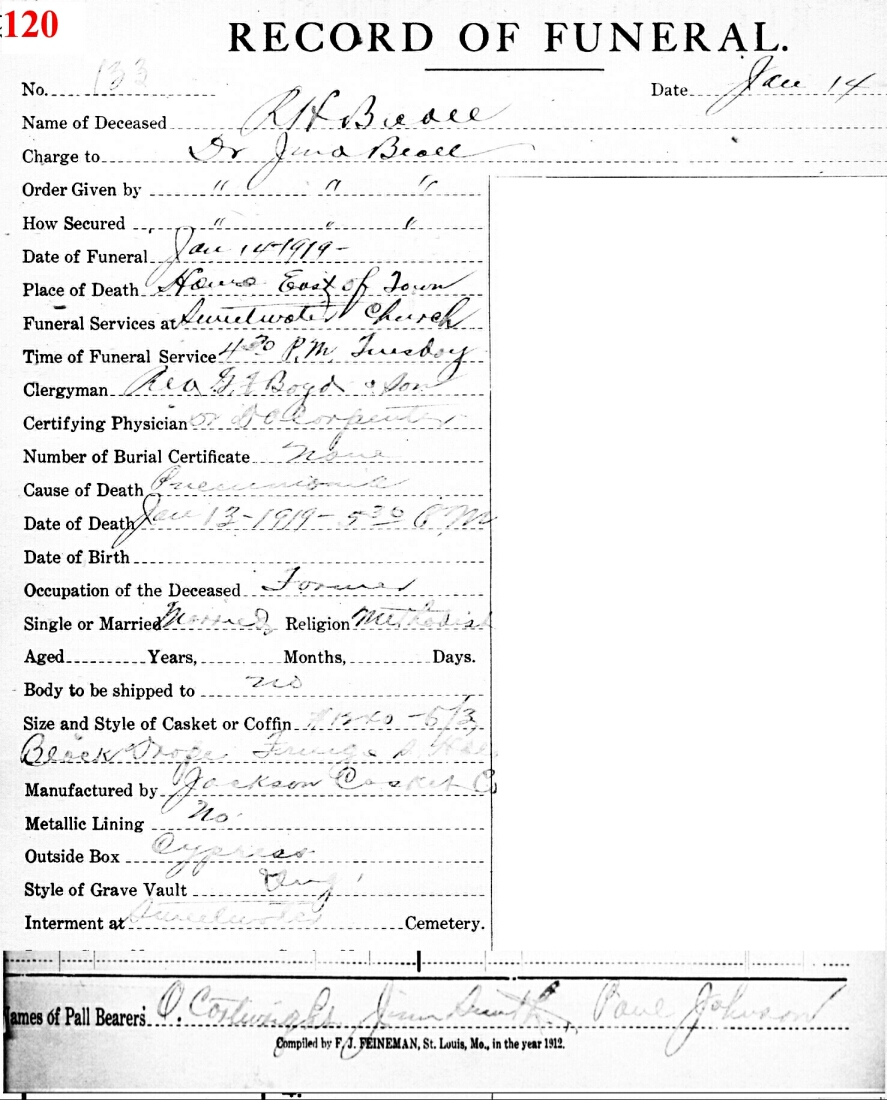 120
RECORD OF FUNERAL.
No. 133 Date Jan 14
Name of Deceased R H Beall
Charge to Dr Jno Beall
Order Given by " " "
How Secured " " "
Date of Funeral Jan 14-1919-
Place of Death Home East of Town
Funeral Services at Sweetwater Church
Time of Funeral Service 4:30 P.M. Tuesday
Clergyman Rev Boyd & Son
Certifying Physician Dr D O Carpenter
Number of Burial Certificate None
Cause of Death Pneumonia
Date of Death Jan 13-1919-5:30 P M
Date of Birth
Occupation of the Deceased Farmer
Single or Married Married Religion Methodist
Aged Years, Months, Days.
Body to be shipped to no
Size and Style of Casket or Coffin
Black
Manufactured by Jackson Casket Co
Metallic Lining No
Outside Box Cypress
Style of Grave Vault
Interment at Sweetwater Cemetery.
ames of Pall Bearers O. Jim Smith, Paul Johnson
Compiled by F. J. FEINEMAN, St. Louis, Mo., in the year 1912.